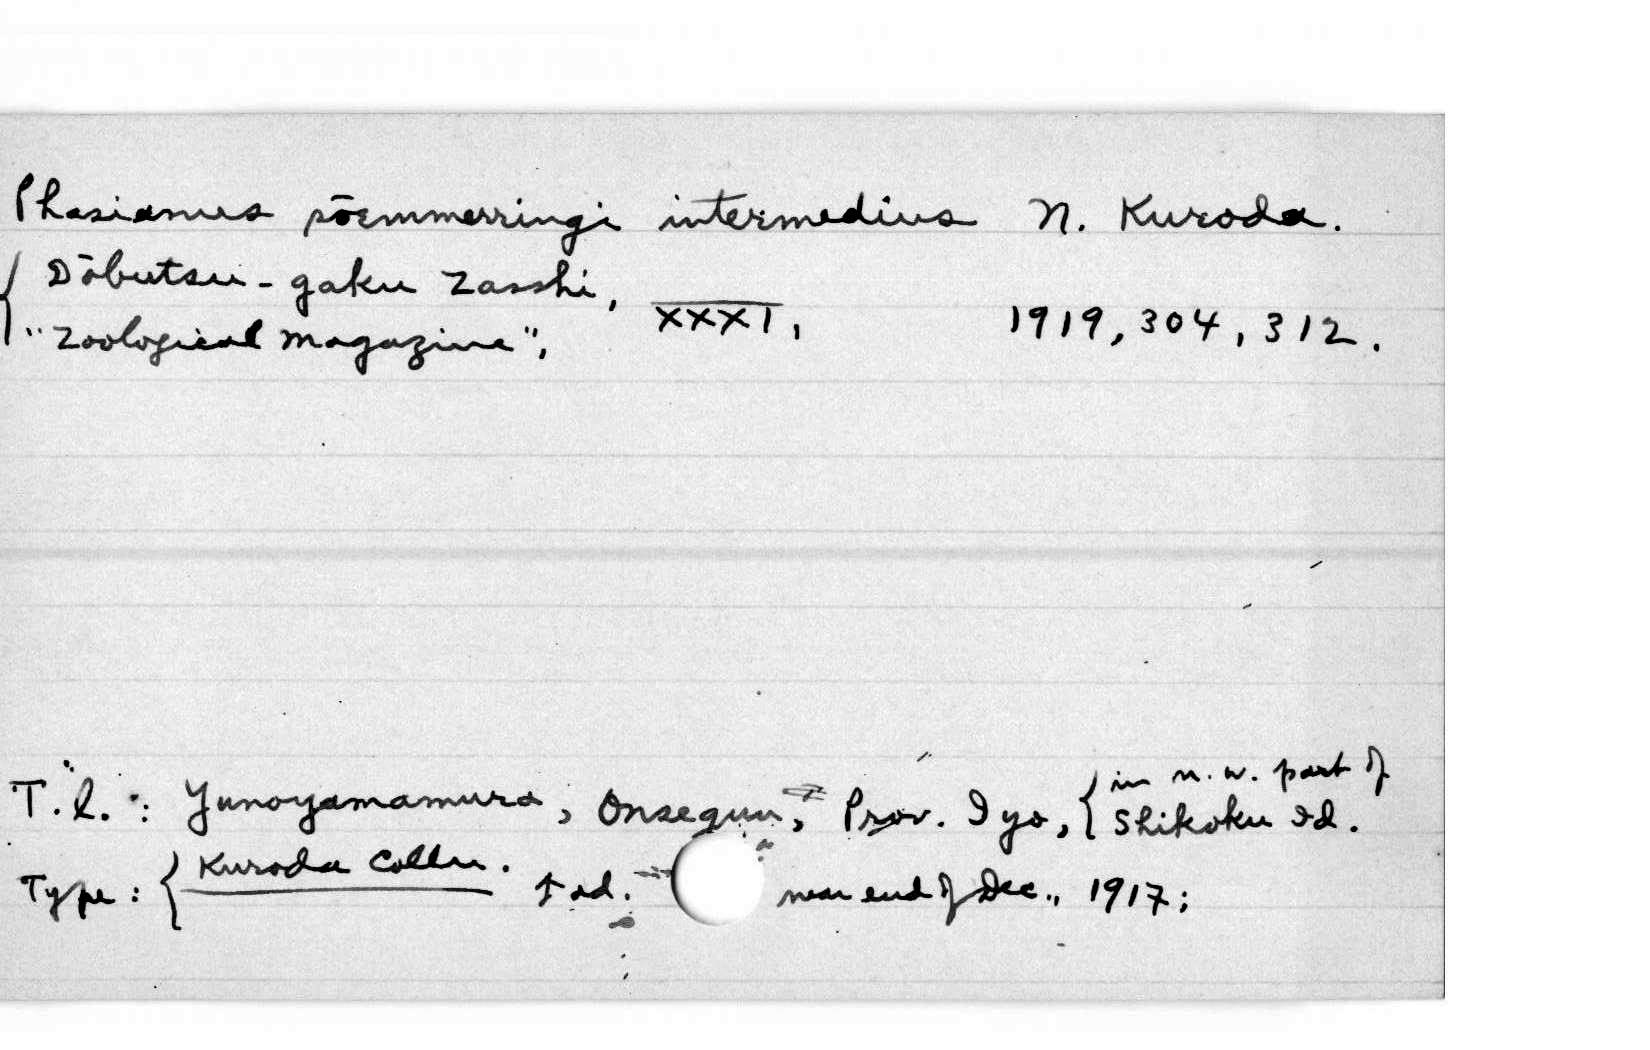 Phasianus sōemmerringi intermedius N. Kuroda.
Dōbutsu-gaku Zasshi,
"Zoological Magazine", XXXI, 1919, 304, 312.
T.l.: Yunoyamamura, Onsegun, Prov. Iyo, { in n.w. part of
Shikoku Id.
Type: { Kuroda Colln. ad. near end of Dec., 1917;